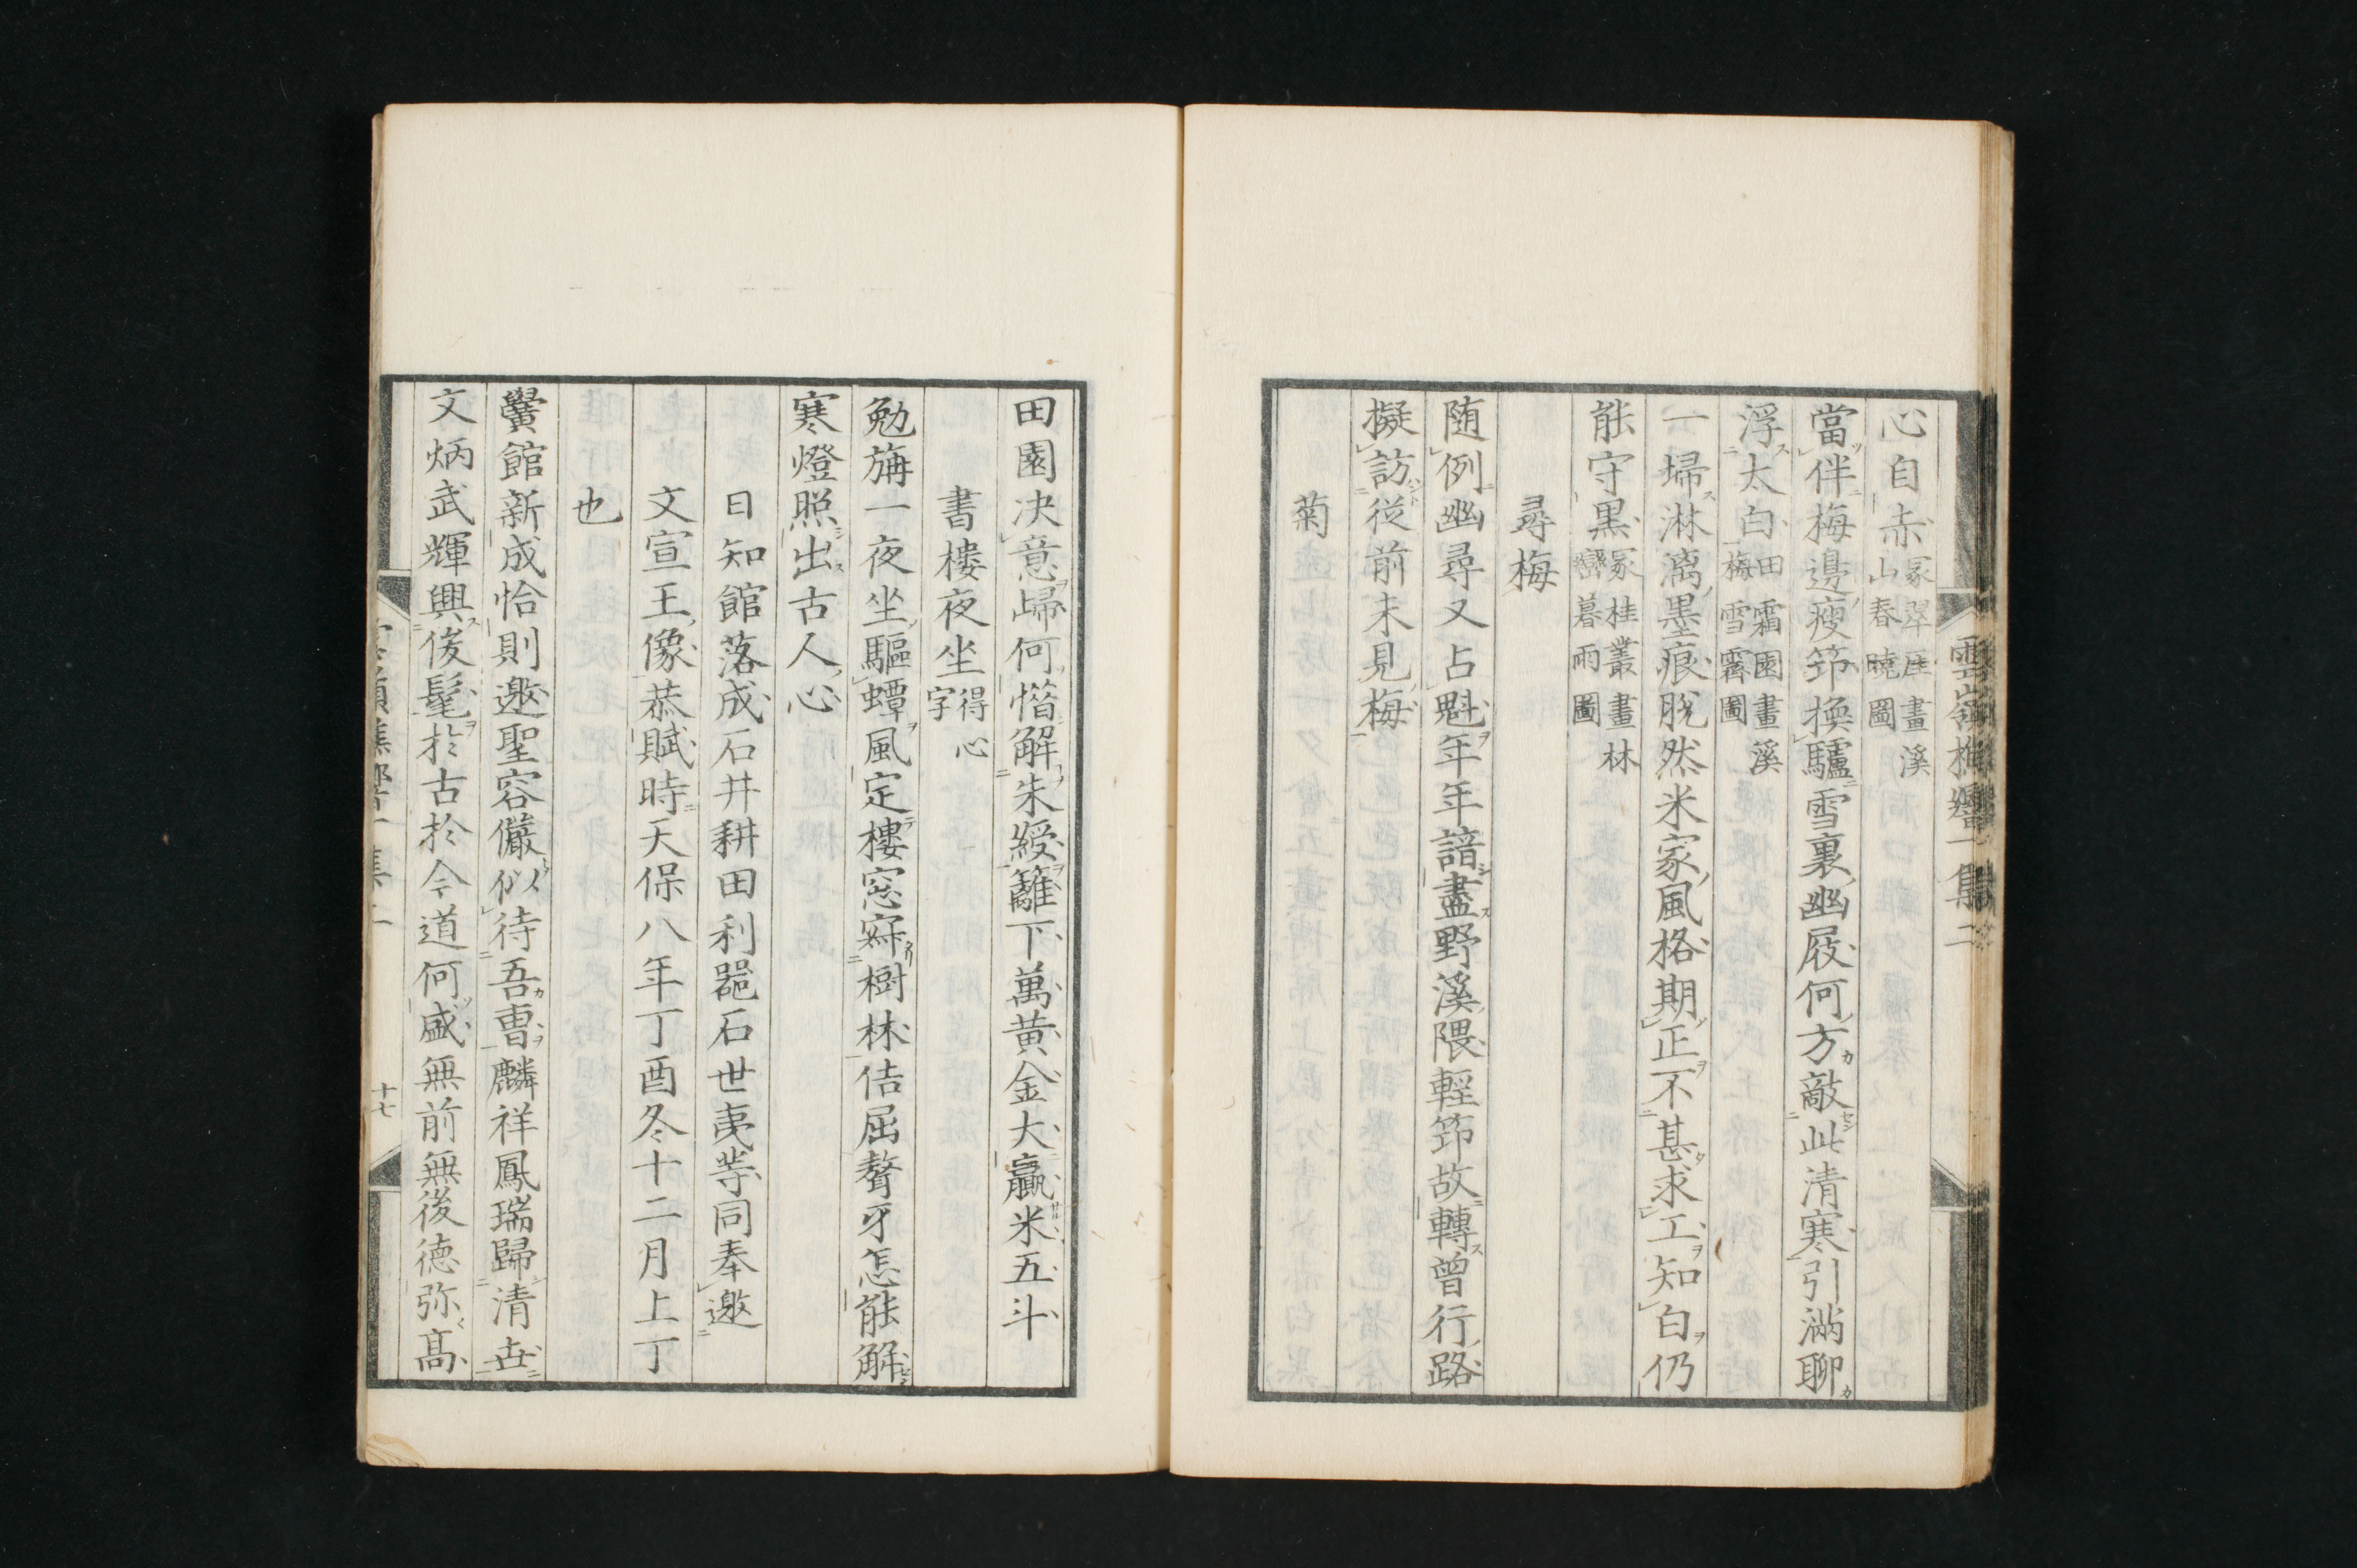 心自赤冢翠厓畫溪山春曉圖
當伴梅邊瘦筇換驢雪裏幽屐何方敵此清寒引滿聊
浮太白田霜園畫溪梅雪霽圖
一埽淋漓墨痕脫然米家風格期正不甚求工知白仍
能守黒冢桂叢畫林巒暮雨圖
尋梅
随例幽尋又占魁年年諳盡野溪隈輕筇故轉曾行路
擬訪從前未見梅
菊
田園决意歸何惜解朱綬籬下萬黄金大贏米五斗
書樓夜坐得心字
勉旃一夜坐驅蟫風定樓窓寐樹林佶屈聱牙怎能解
寒燈照出古人心
日知館落成石井耕田利器石世夷等同奉邀
文宣王像恭賦時天保八年丁酉冬十二月上丁
也
黌館新成恰則邀聖容儼似待吾曹麟祥鳳瑞歸清世
文炳武輝興俊髦於古於今道何盛無前無後德弥高
十七